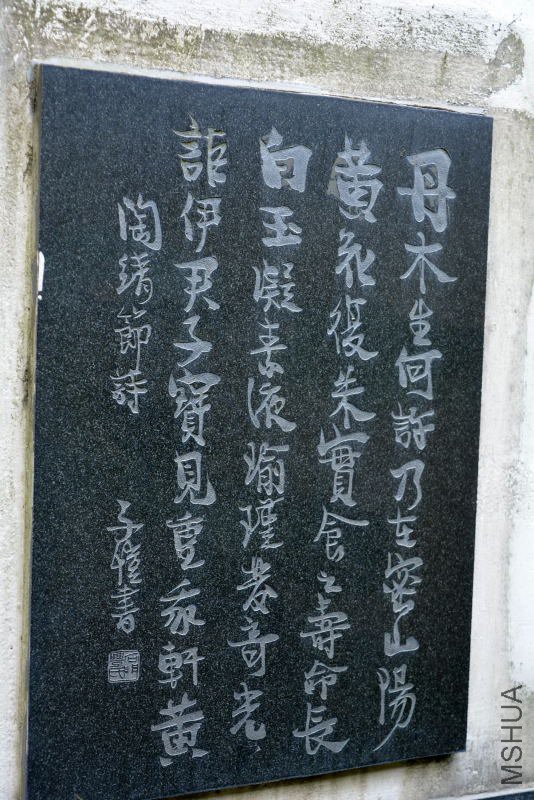 丹木生何許乃在密山陽
黃花復朱實食之壽命長
白玉凝素液瑜瑾發奇光
詎伊君子寶見重我軒黃
陶靖節詩 子愷書
MSHUA